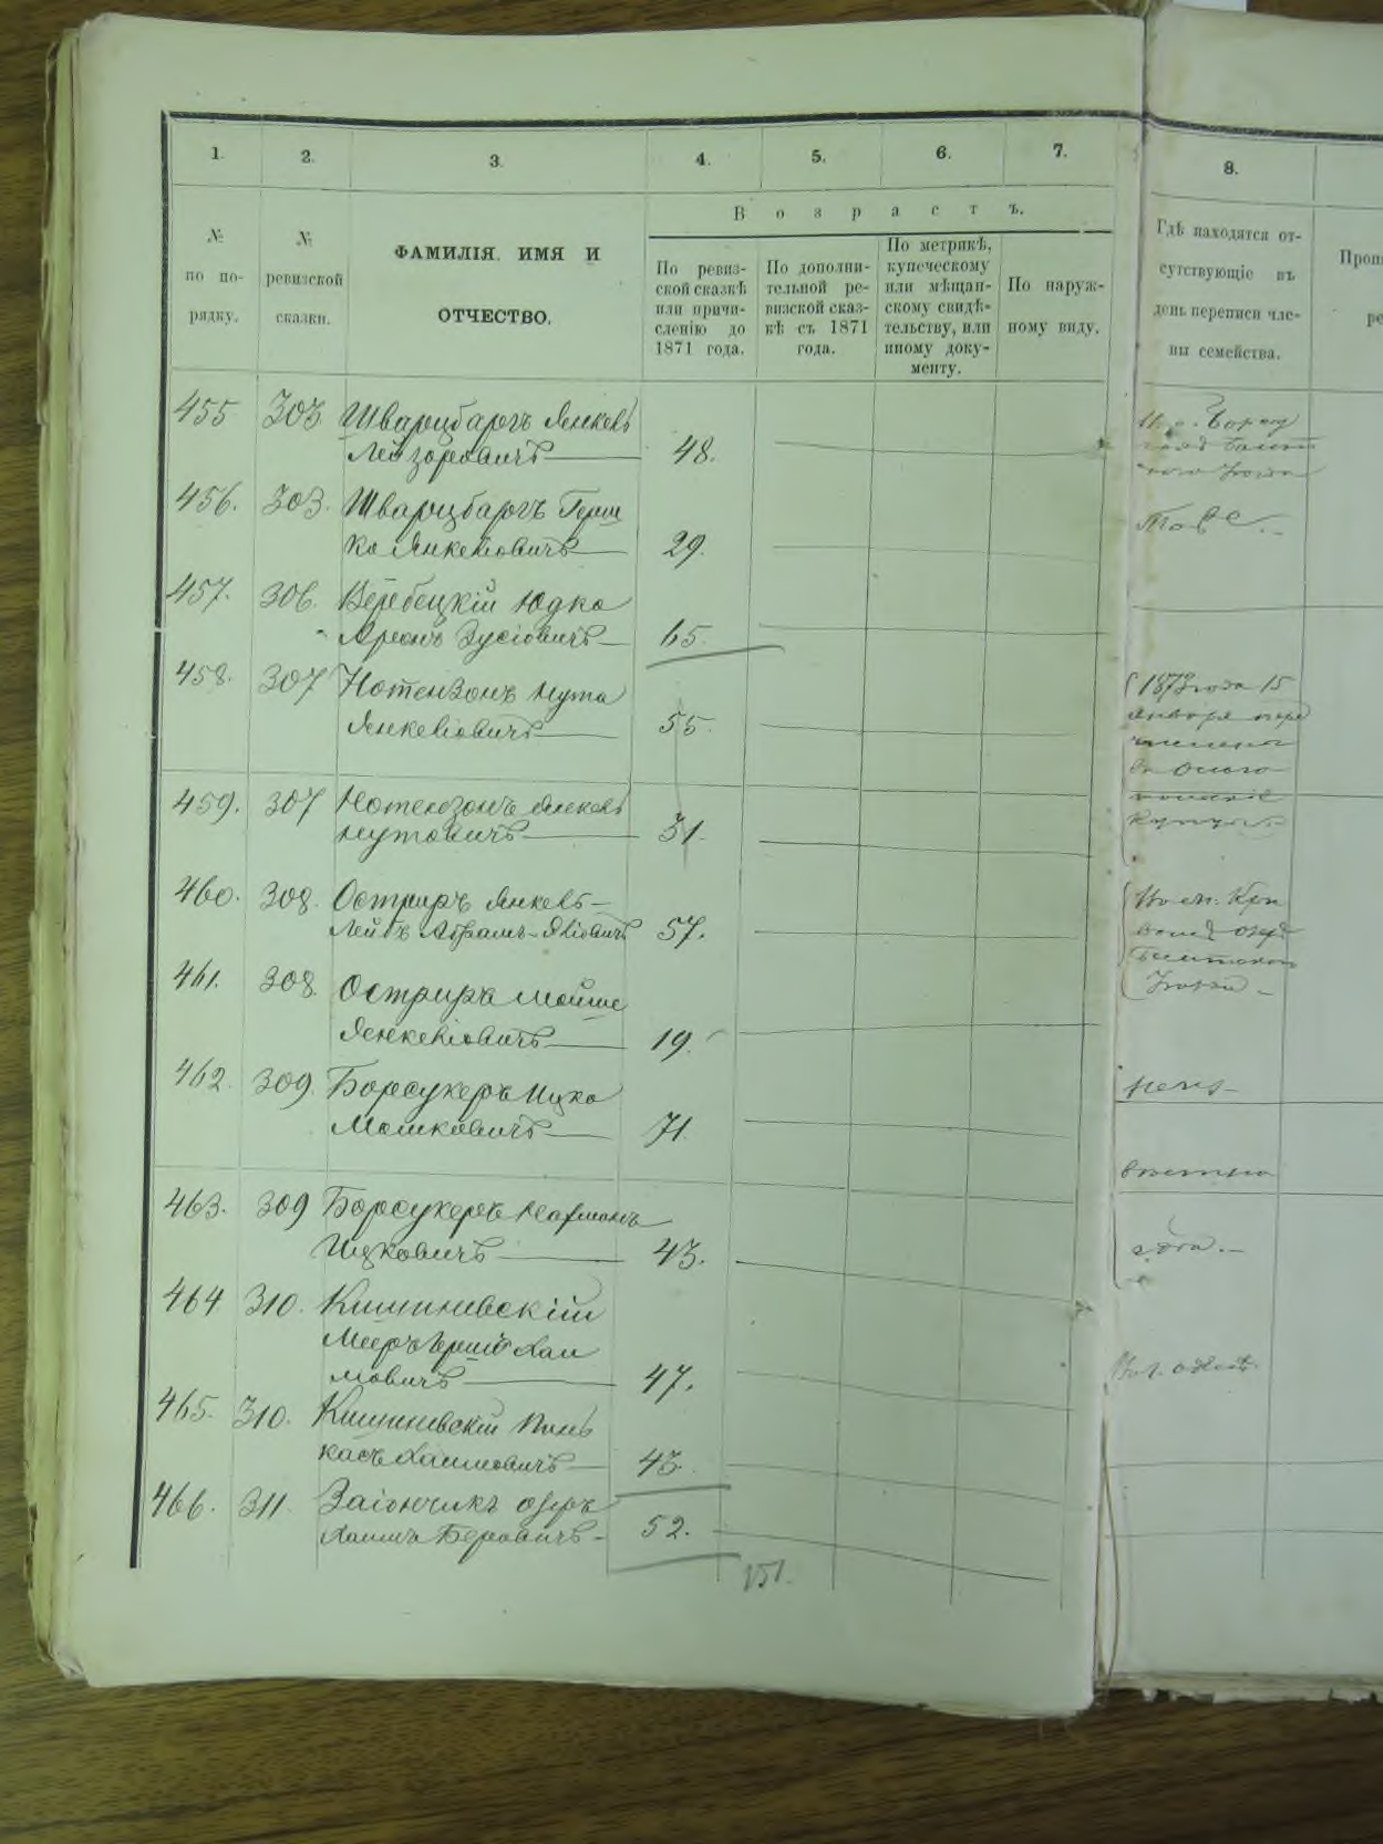 1. 2. 3. 4. 5. 6. 7. 8.
Возрастъ.
№
по по-
рядку.
№
ревизской
сказки.
ФАМИЛІЯ. ИМЯ И
ОТЧЕСТВО.
По ревиз-
ской сказкѣ
или причи-
сленію до
1871 года.
По дополни-
тельной ре-
визской сказ-
кѣ съ 1871
года.
По метрикѣ,
купеческому
или мѣщан-
скому свидѣ-
тельству, или
иному доку-
менту.
По наруж-
ному виду.
Гдѣ находятся от-
сутствующіе въ
день переписи чле-
ны семейства.
455 303. Шварцбаргъ Янкель
Лейзоровичъ 48.
456. 303. Шварцбаргъ Герш
ко Янкеліовичъ 29.
457. 306. Веребецкій Юдко
Аронъ Зусіовичъ 65.
458. 307 Нотензонъ Нута
Янкеліовичъ 55.
459. 307 Нотензонъ Янкель
Нутовичъ 31.
460. 308. Остриръ Янкель-
Лейбъ Абрамъ- 57.
461. 308. Остриръ Мойше
Янкеліовичъ 19.
462. 309. Борсукеръ Ицко
Мошковичъ 71.
463. 309 Борсукеръ Нафтолъ
Ицковичъ 43.
464 310. Кишиневскій
Мееръ Гершъ Хаи
мовичъ 47.
465. 310. Кишиневскій Пинь
касъ Хаимовичъ 43.
466. 311. Заіончикъ Озеръ
Хаимъ Беровичъ 52.
1873 года 15
января пере
числены
въ
купцы.